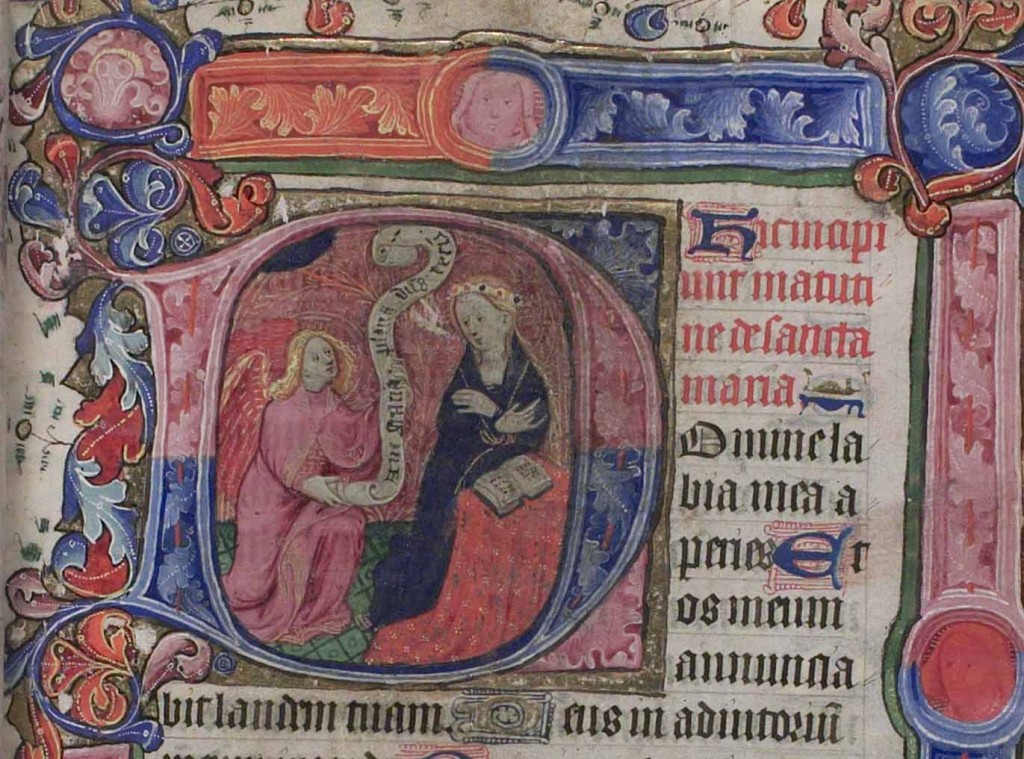 Hic incipi
unt matuti
ne de sancta
maria
Domine la
bia mea a
peries Et
os meum
annuncia
bit laudem tuam. Deus in adiutoriū
Aue Maria plena